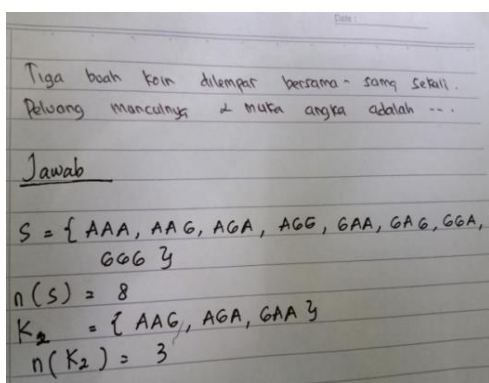 Date :
Tiga buah koin dilempar bersama - sama sekali.
Peluang munculnya 2 muka angka adalah ....
Jawab
S = { AAA, AAG, AGA, AGG, GAA, GAG, GGA,
GGG }
n(S) = 8
K₂ = { AAG, AGA, GAA }
n(K₂) = 3